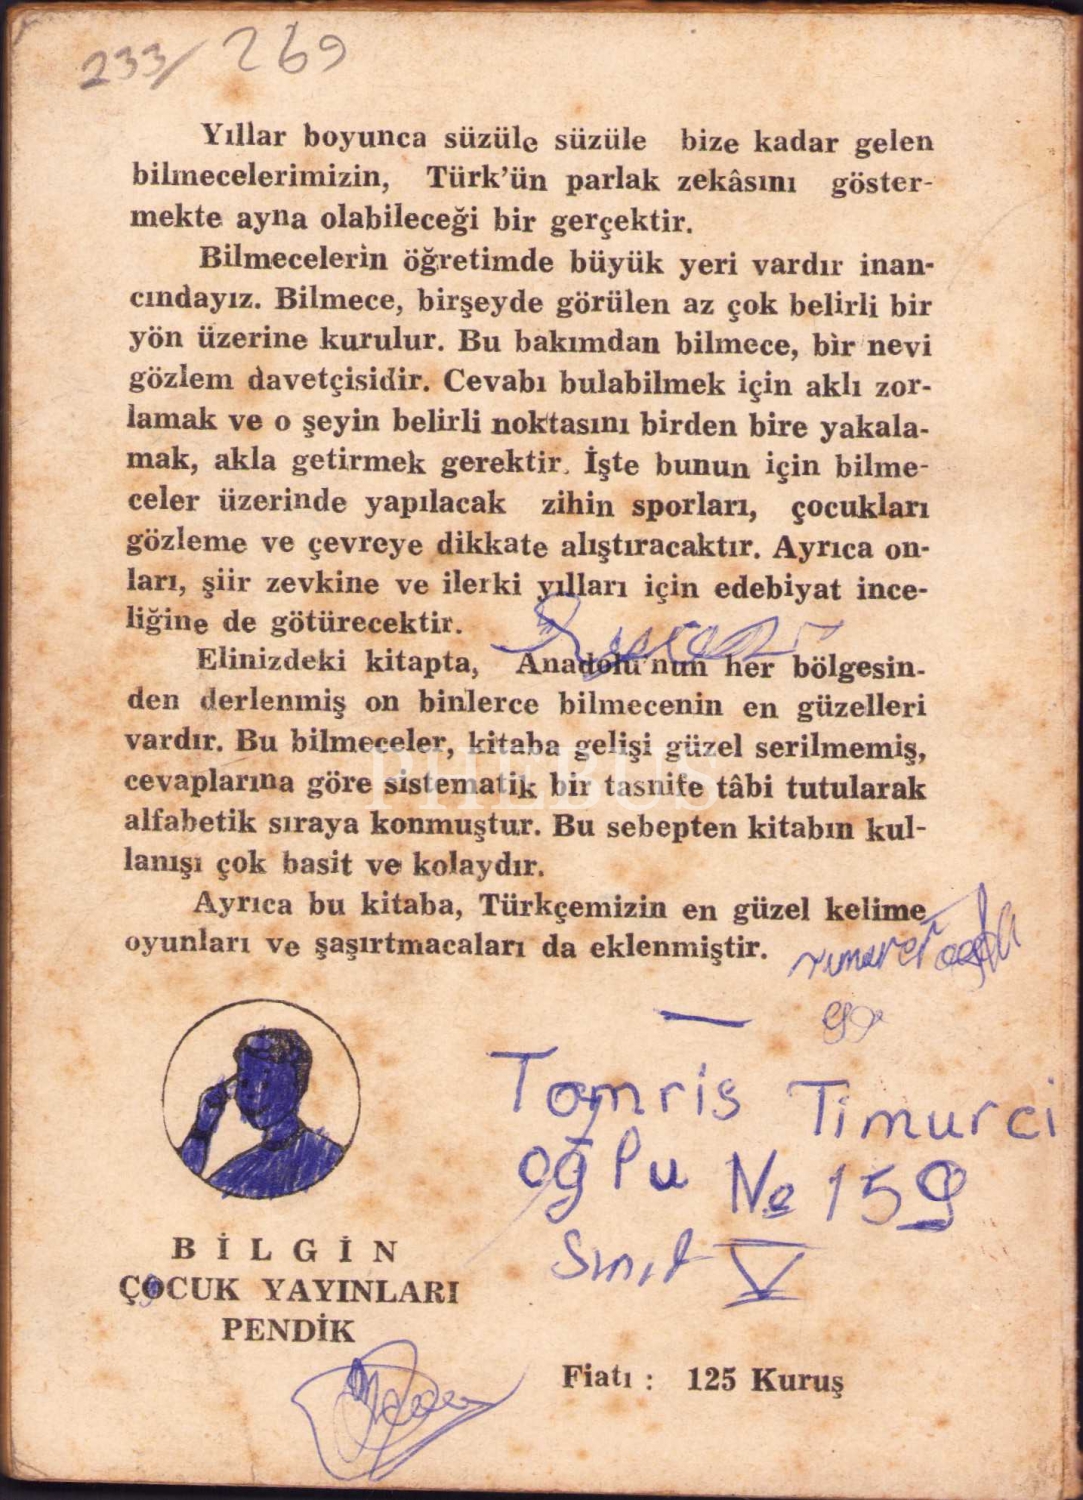 233/ 269
Yıllar boyunca süzüle süzüle bize kadar gelen
bilmecelerimizin, Türk'ün parlak zekâsını göster-
mekte ayna olabileceği bir gerçektir.
Bilmecelerin öğretimde büyük yeri vardır inan-
cındayız. Bilmece, birşeyde görülen az çok belirli bir
yön üzerine kurulur. Bu bakımdan bilmece, bir nevi
gözlem davetçisidir. Cevabı bulabilmek için aklı zor-
lamak ve o şeyin belirli noktasını birden bire yakala-
mak, akla getirmek gerektir. İşte bunun için bilme-
celer üzerinde yapılacak zihin sporları, çocukları
gözleme ve çevreye dikkate alıştıracaktır. Ayrıca on-
ları, şiir zevkine ve ilerki yılları için edebiyat ince-
liğine de götürecektir.
Elinizdeki kitapta, Anadolu'nun her bölgesin-
den derlenmiş on binlerce bilmecenin en güzelleri
vardır. Bu bilmeceler, kitaba gelişi güzel serilmemiş,
cevaplarına göre sistematik bir tasnife tâbi tutularak
alfabetik sıraya konmuştur. Bu sebepten kitabın kul-
lanışı çok basit ve kolaydır.
Ayrıca bu kitaba, Türkçemizin en güzel kelime
oyunları ve şaşırtmacaları da eklenmiştir.
PHEBUS
Tomris Timurci
oğlu No 159
Sınıf V
BİLGİN
ÇOCUK YAYINLARI
PENDİK
Fiatı : 125 Kuruş